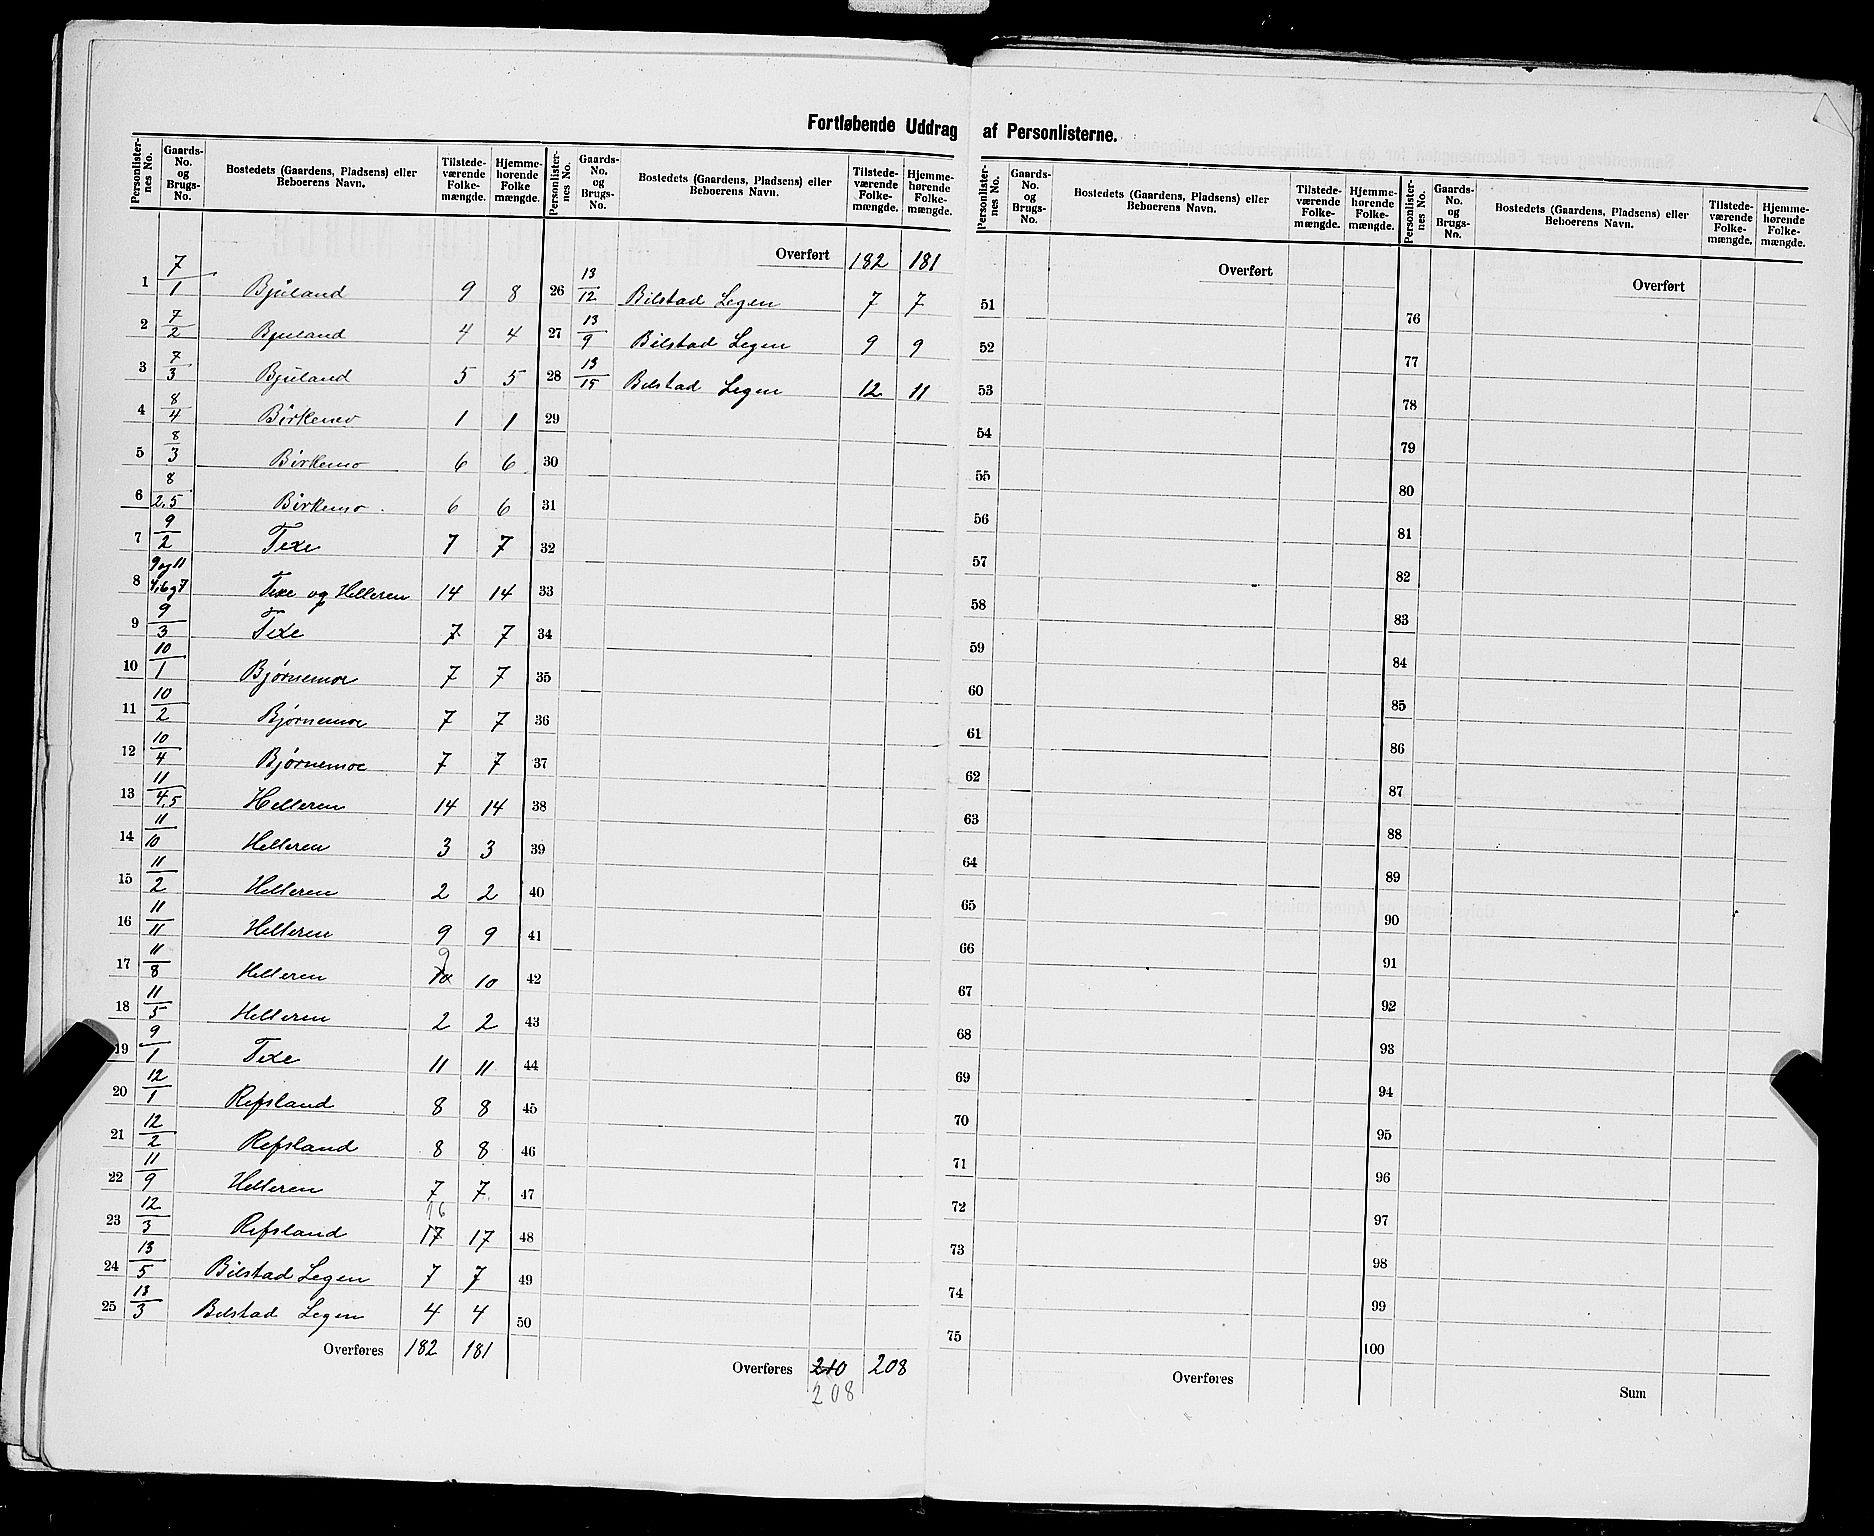 Fortløbende Uddrag af Personlisterne.
Personlisternes No. | Gaards-No. og Brugs-No. | Bostedets (Gaardens, Pladsens) eller Beboerens Navn. | Tilstedeværende Folkemængde. | Hjemmehørende Folkemængde.
1 | 7/1 | Bjuland | 9 | 8
2 | 7/2 | Bjuland | 4 | 4
3 | 7/3 | Bjuland | 5 | 5
4 | 8/4 | Birkemo | 1 | 1
5 | 8/3 | Birkemo | 6 | 6
6 | 8/2,5 | Birkemo | 6 | 6
7 | 9/2 | Texe | 7 | 7
8 | 9 og 11 | Texe og Helleren | 14 | 14
9 | 9/3 | Texe | 7 | 7
10 | 10/1 | Bjørnemoe | 7 | 7
11 | 10/2 | Bjørnemoe | 7 | 7
12 | 10/4 | Bjørnemoe | 7 | 7
13 | 11/4,5 | Helleren | 14 | 14
14 | 11/10 | Helleren | 3 | 3
15 | 11/2 | Helleren | 2 | 2
16 | 11/11 | Helleren | 9 | 9
17 | 11/8 | Helleren | 10 9 | 10
18 | 11/5 | Helleren | 2 | 2
19 | 9/1 | Texe | 11 | 11
20 | 12/1 | Refsland | 8 | 8
21 | 12/2 | Refsland | 8 | 8
22 | 11/9 | Helleren | 7 | 7
23 | 12/3 | Refsland | 17 16 | 17
24 | 13/5 | Bilstad Legen | 7 | 7
25 | 13/3 | Bilstad Legen | 4 | 4
Overføres | 182 | 181
Personlisternes No. | Gaards-No. og Brugs-No. | Bostedets (Gaardens, Pladsens) eller Beboerens Navn. | Tilstedeværende Folkemængde. | Hjemmehørende Folkemængde.
Overført | 182 | 181
26 | 13/12 | Bilstad Legen | 7 | 7
27 | 13/9 | Bilstad Legen | 9 | 9
28 | 13/15 | Bilstad Legen | 12 | 11
29
30
31
32
33
34
35
36
37
38
39
40
41
42
43
44
45
46
47
48
49
50
Overføres | 210 | 208
208
Personlisternes No. | Gaards-No. og Brugs-No. | Bostedets (Gaardens, Pladsens) eller Beboerens Navn. | Tilstedeværende Folkemængde. | Hjemmehørende Folkemængde.
Overført
51
52
53
54
55
56
57
58
59
60
61
62
63
64
65
66
67
68
69
70
71
72
73
74
75
Overføres
Personlisternes No. | Gaards-No. og Brugs-No. | Bostedets (Gaardens, Pladsens) eller Beboerens Navn. | Tilstedeværende Folkemængde. | Hjemmehørende Folkemængde.
Overført
76
77
78
79
80
81
82
83
84
85
86
87
88
89
90
91
92
93
94
95
96
97
98
99
100
Sum